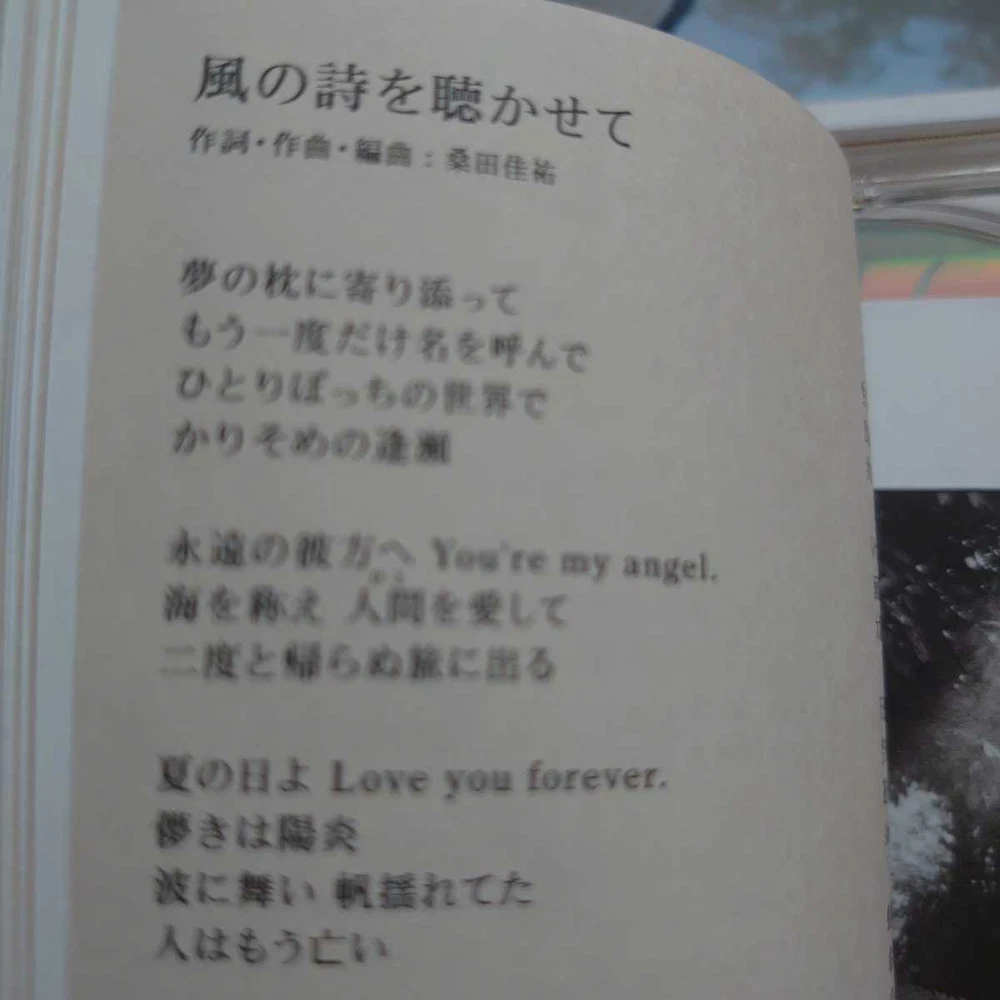 風の詩を聴かせて
作詞・作曲・編曲：桑田佳祐
夢の枕に寄り添って
もう一度だけ名を呼んで
ひとりぼっちの世界で
かりそめの逢瀬
永遠の彼方へ You're my angel.
海を称え 人間を愛して
二度と帰らぬ旅に出る
夏の日よ Love you forever.
儚きは陽炎
波に舞い 帆揺れてた
人はもう亡い